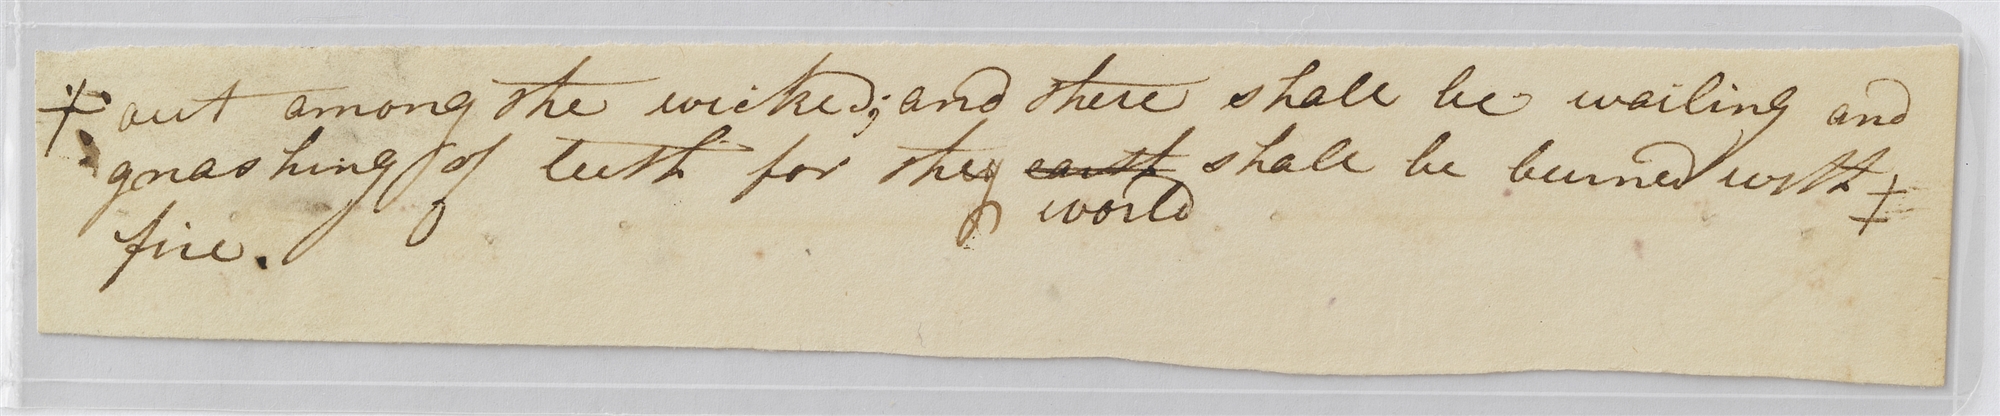 out among the wicked; and there shall be wailing and
gnashing of teeth for they earth shall be burned with
world
fire.